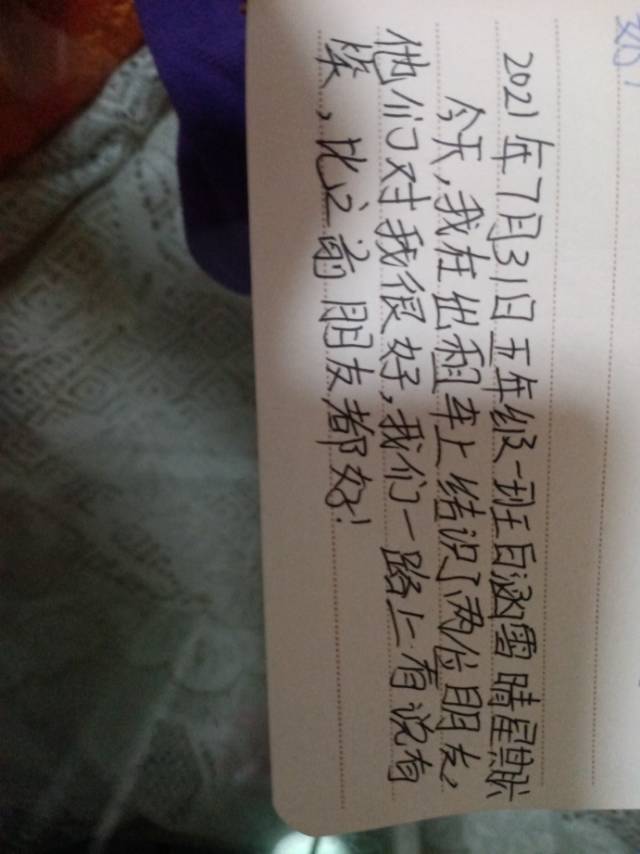 2021年7月31日五年级一班白涵雪 晴 星期六
今天,我在出租车上结识了两位朋友,
他们对我很好,我们一路上有说有
笑,比之前朋友都好!